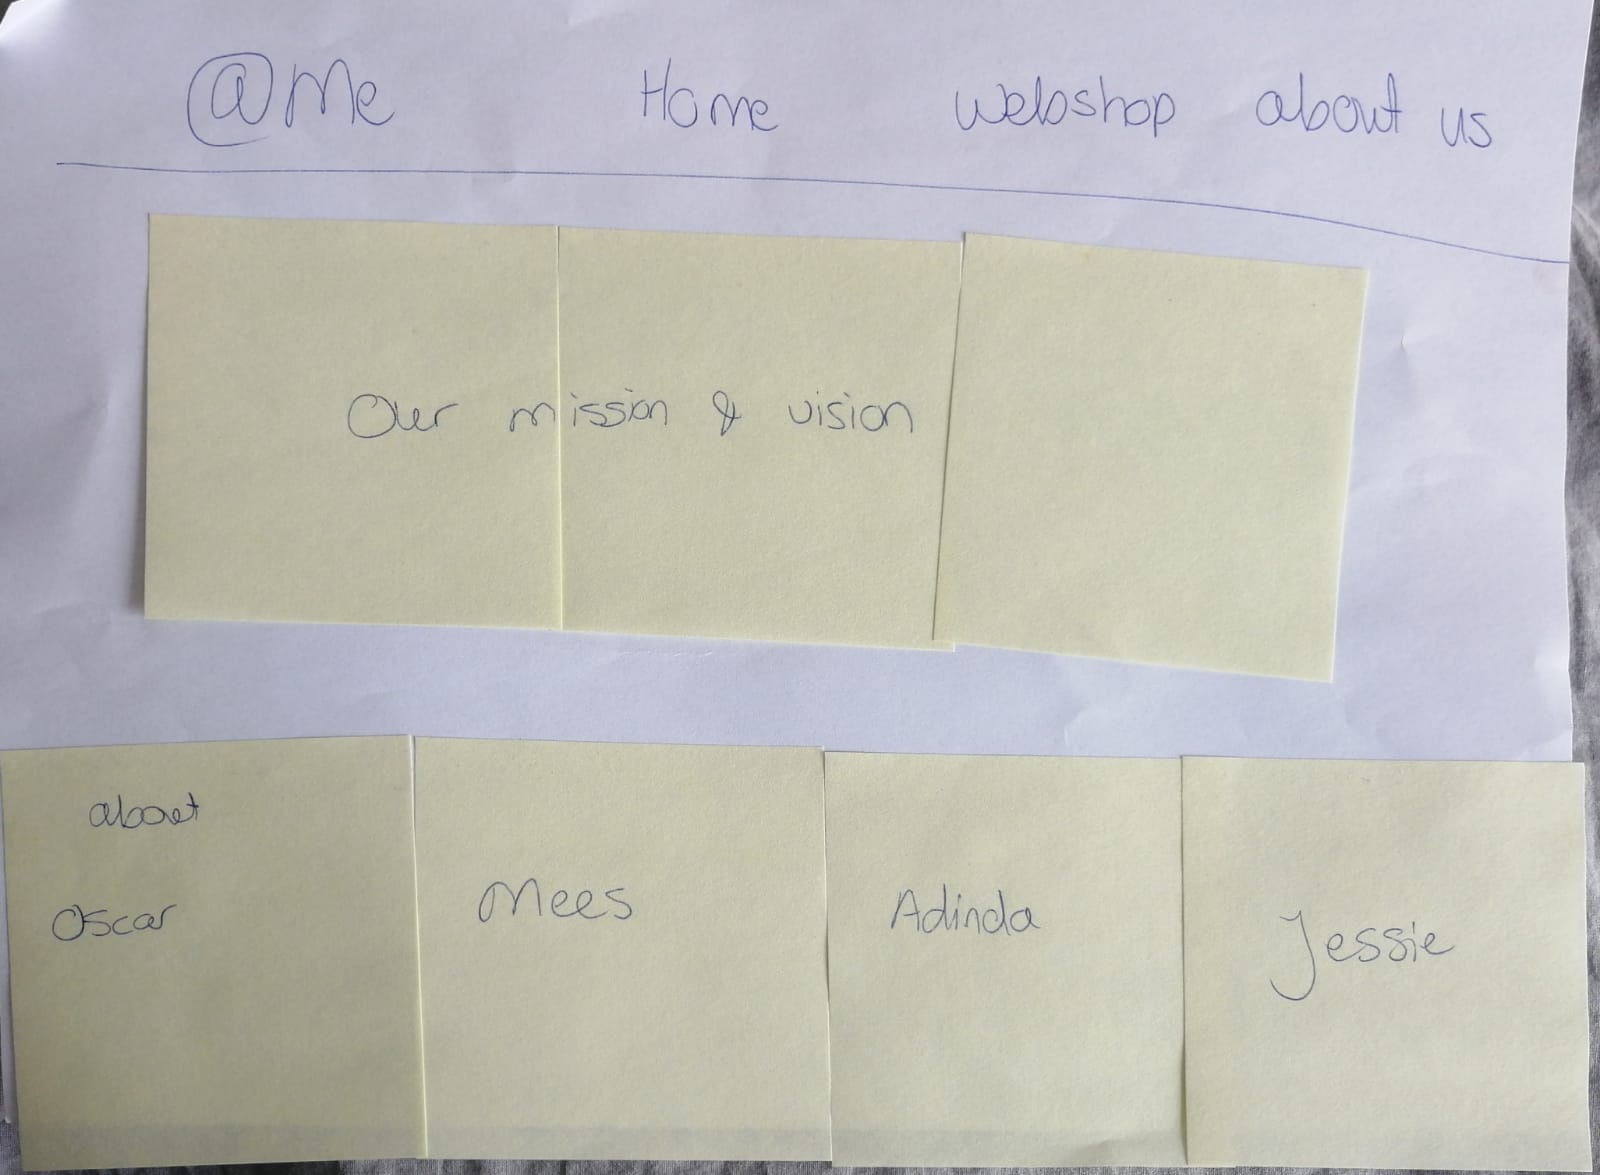 @Me Home webshop about us
Our mission & vision
about
Oscar
Mees
Adinda
Jessie